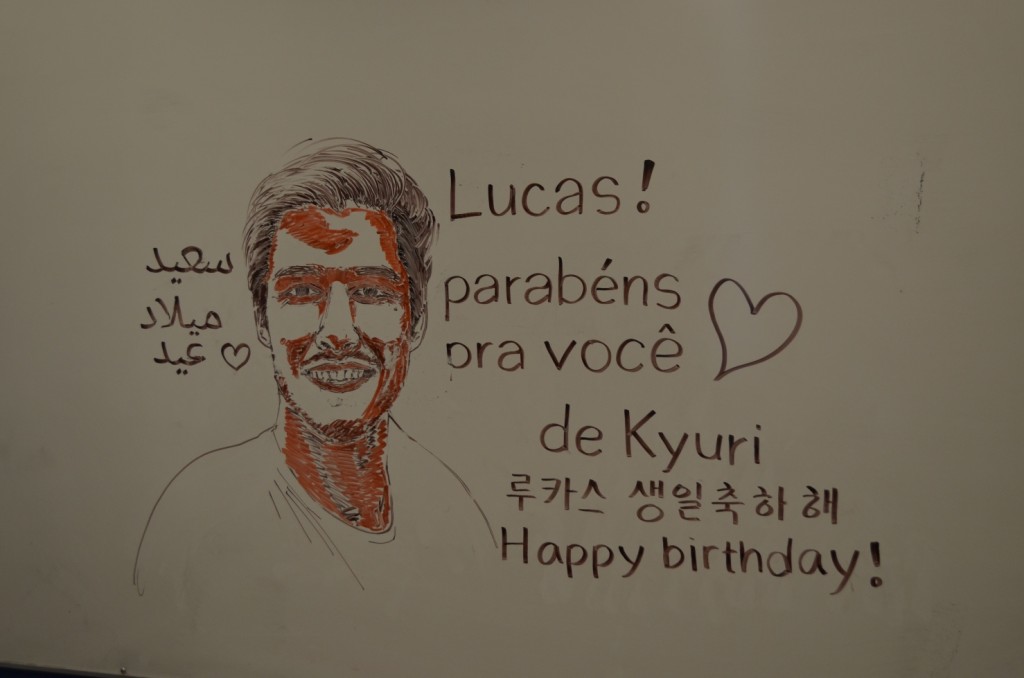 Lucas!
parabéns
pra você
de Kyuri
루카스 생일축하해
Happy birthday!
سعيد
ميلاد
عيد